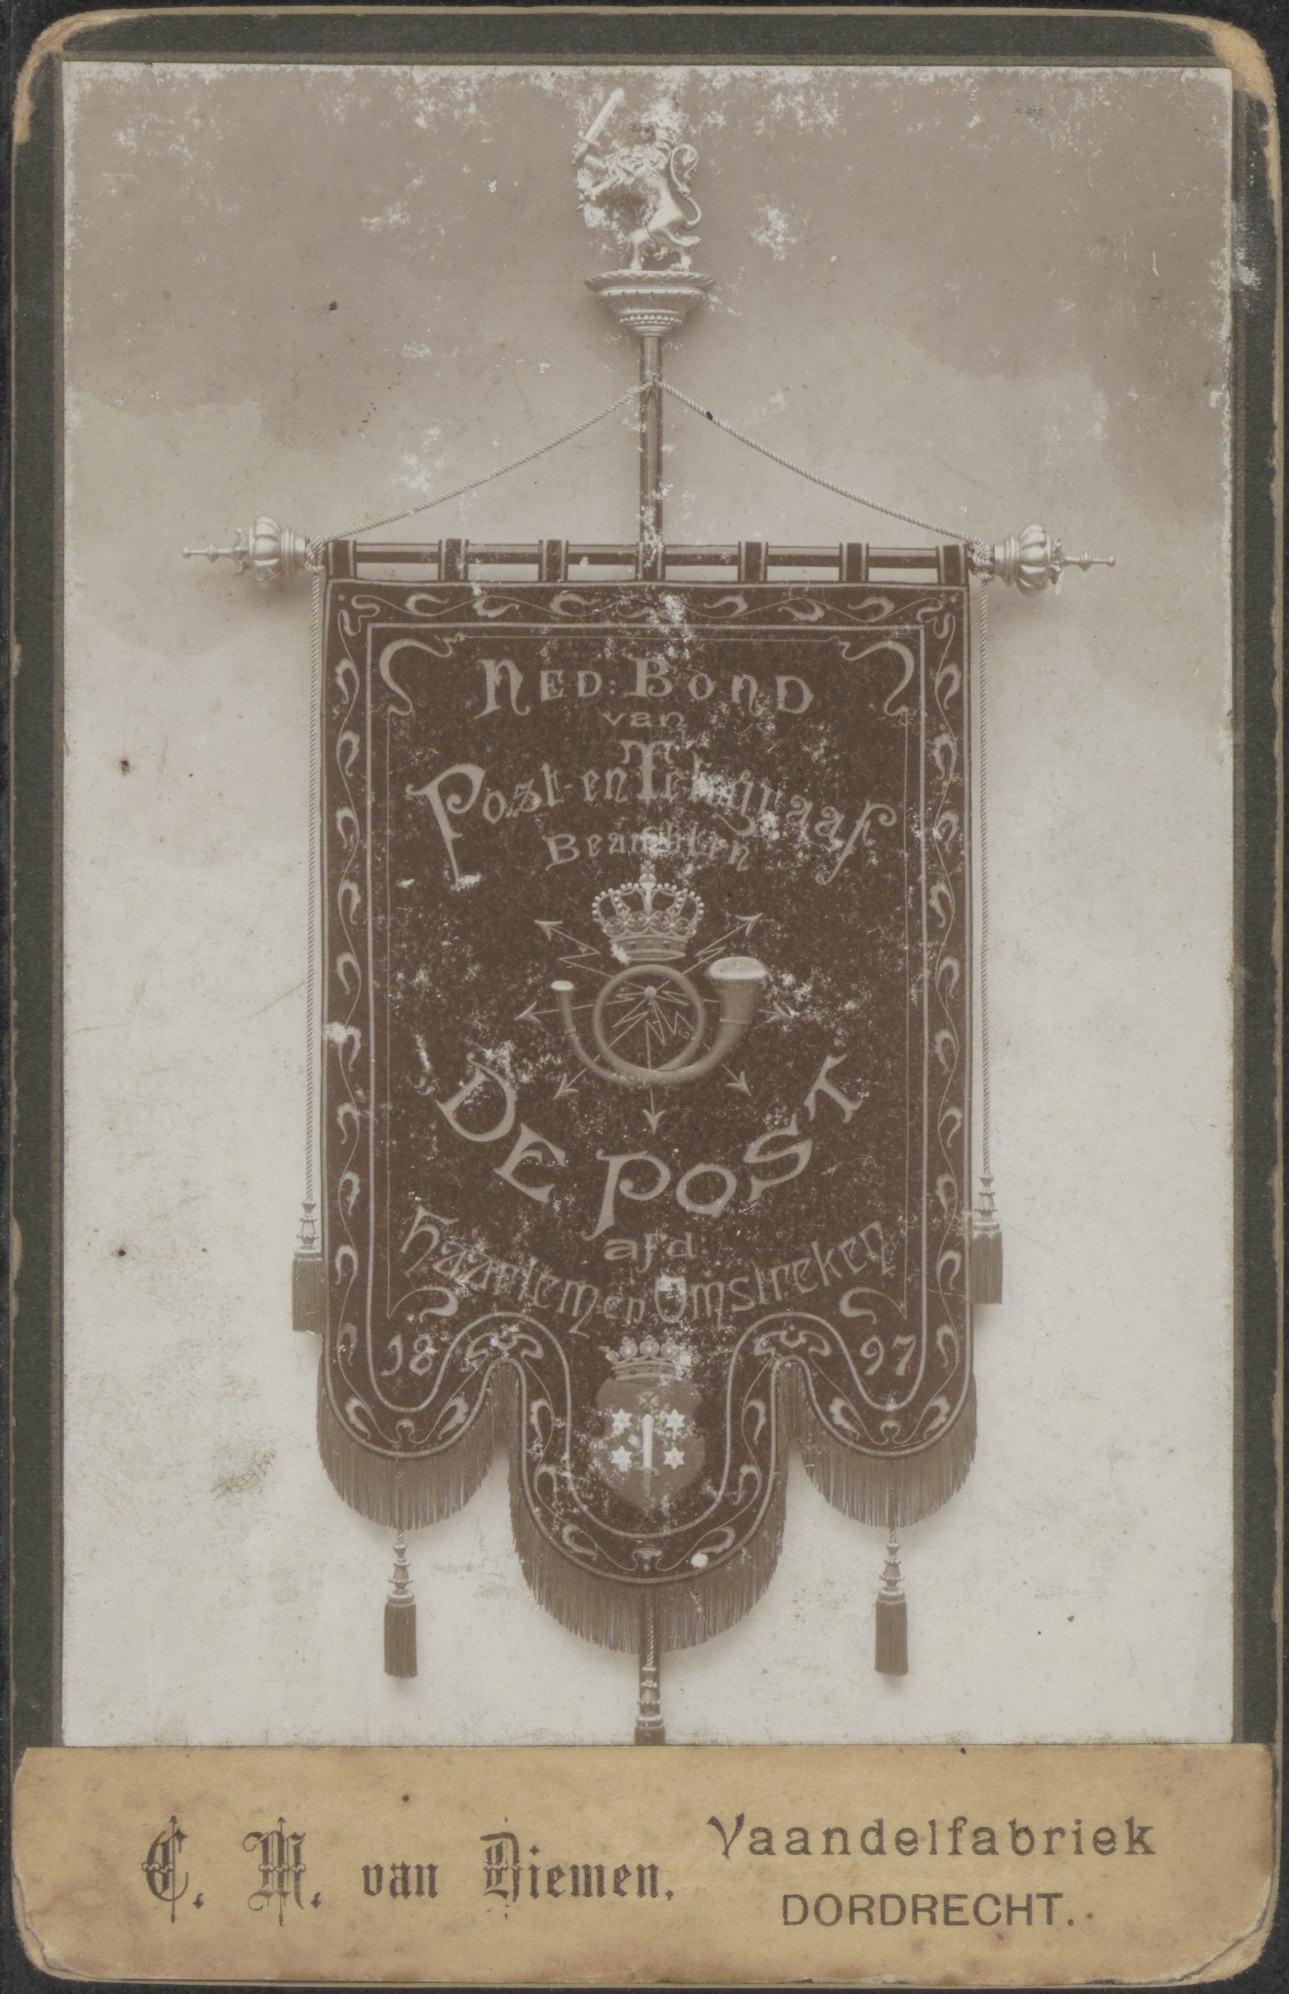 NED: BOND
van
Post- en Telegraaf
Beambten
DE POST
afd:
Haarlem en Omstreken
18 97
C. M. van Diemen. Vaandelfabriek
DORDRECHT.